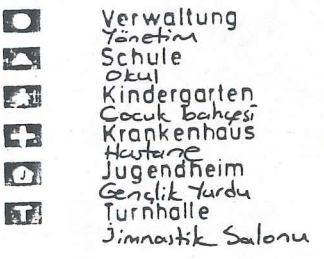 Verwaltung
Yönetim
Schule
Okul
Kindergarten
Çocuk bahçesi
Krankenhaus
Hastane
J Jugendheim
Gençlik Yurdu
T Turnhalle
Jimnastik Salonu